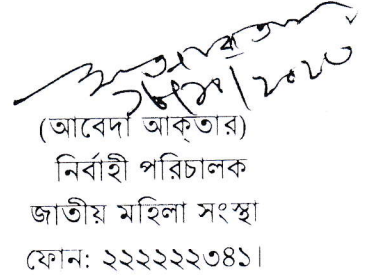 (আবেদা আক্তার)
নির্বাহী পরিচালক
জাতীয় মহিলা সংস্থা
ফোন: ২২২২২২৩৪১।